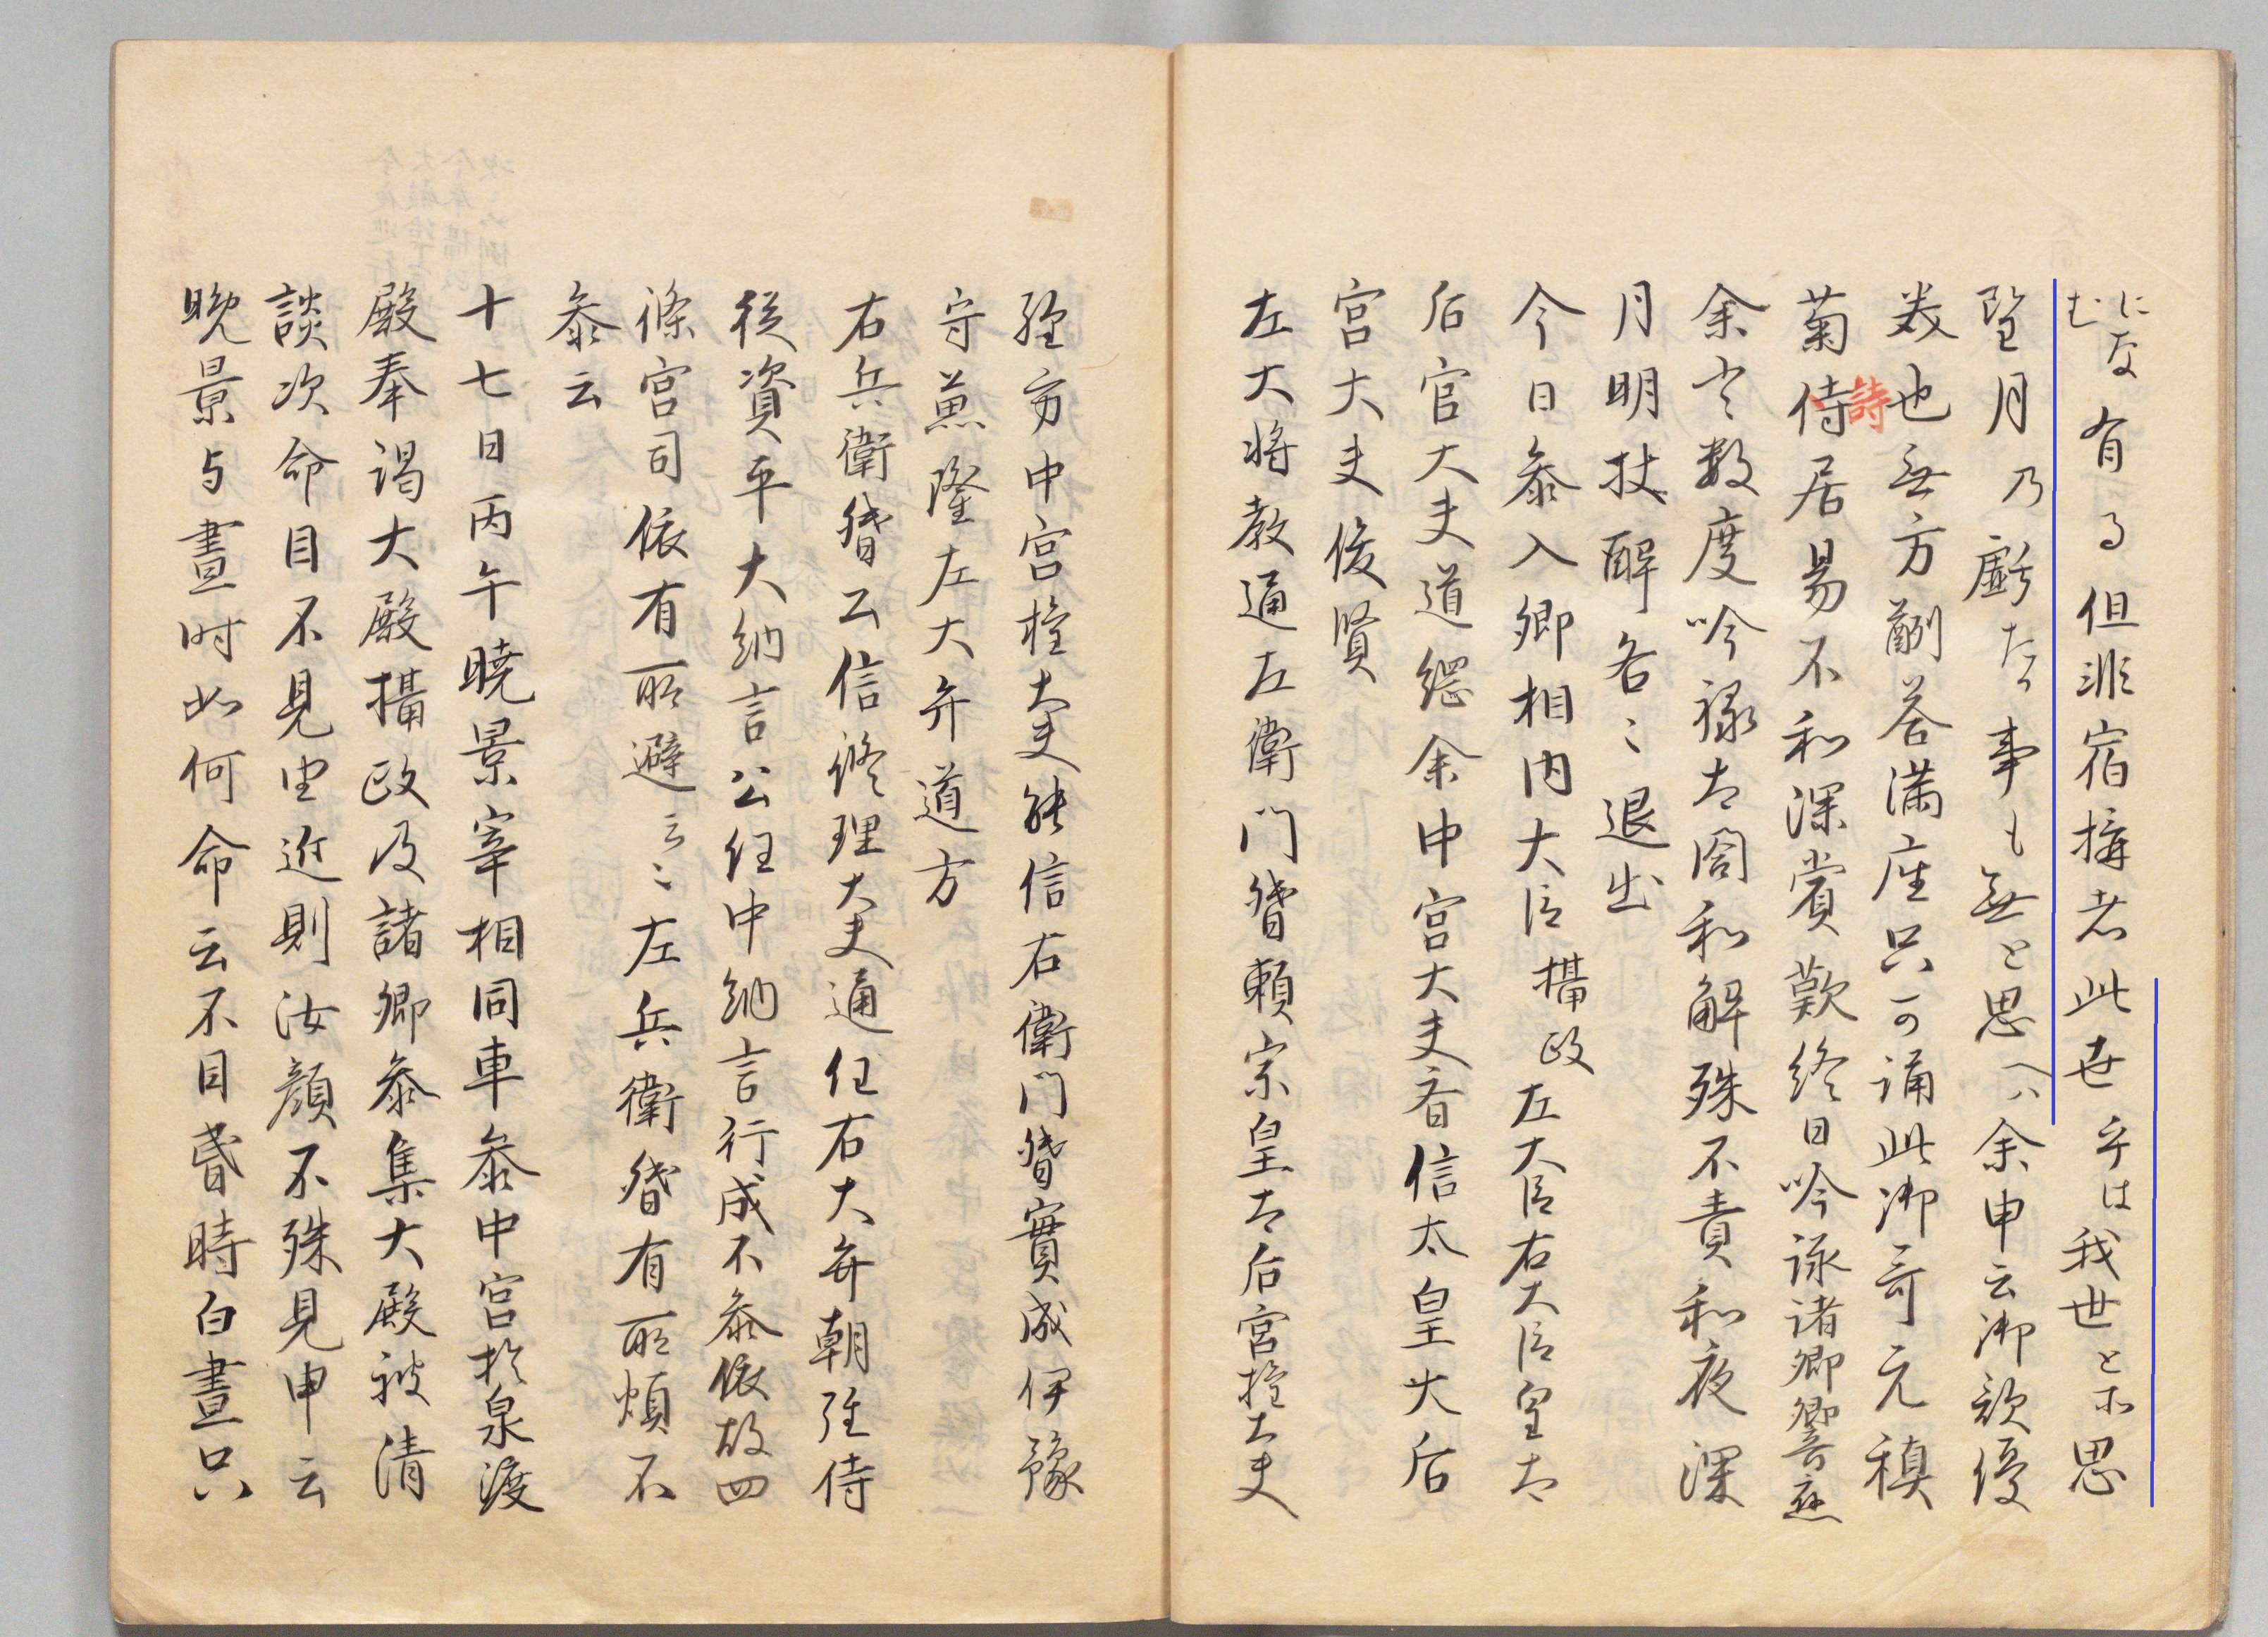 むになむ有る但非宿構者此世乎は我世とそ思
望月乃虧たる事も無と思へハ余申云御歌優
美也無方酬答満座只可誦此御哥元稹
菊詩居易不和深賞歎終日吟詠諸卿響應
余言数度吟詠太閤和解殊不責和夜深
月明扶酔各〻退出
今日参入卿相内大臣摂政左大臣右大臣皇太
后宮大夫道綱余中宮大夫斉信太皇大后
宮大夫俊賢
左大将教通左衛門督頼宗皇太后宮権大夫
経房中宮権大夫能信右衛門督實成伊豫
守兼隆左大弁道方
右兵衛督公信修理大夫通任右大弁朝経侍
従資平大納言公任中納言行成不参依故四
條宮司依有所避云〻左兵衛督有所煩不
参云
十七日丙午暁景宰相同車参中宮於泉渡
殿奉謁大殿摂政及諸卿参集大殿被清
談次命目不見由近則汝顔不殊見申云
晩景与晝时如何命云不因昏時白晝只